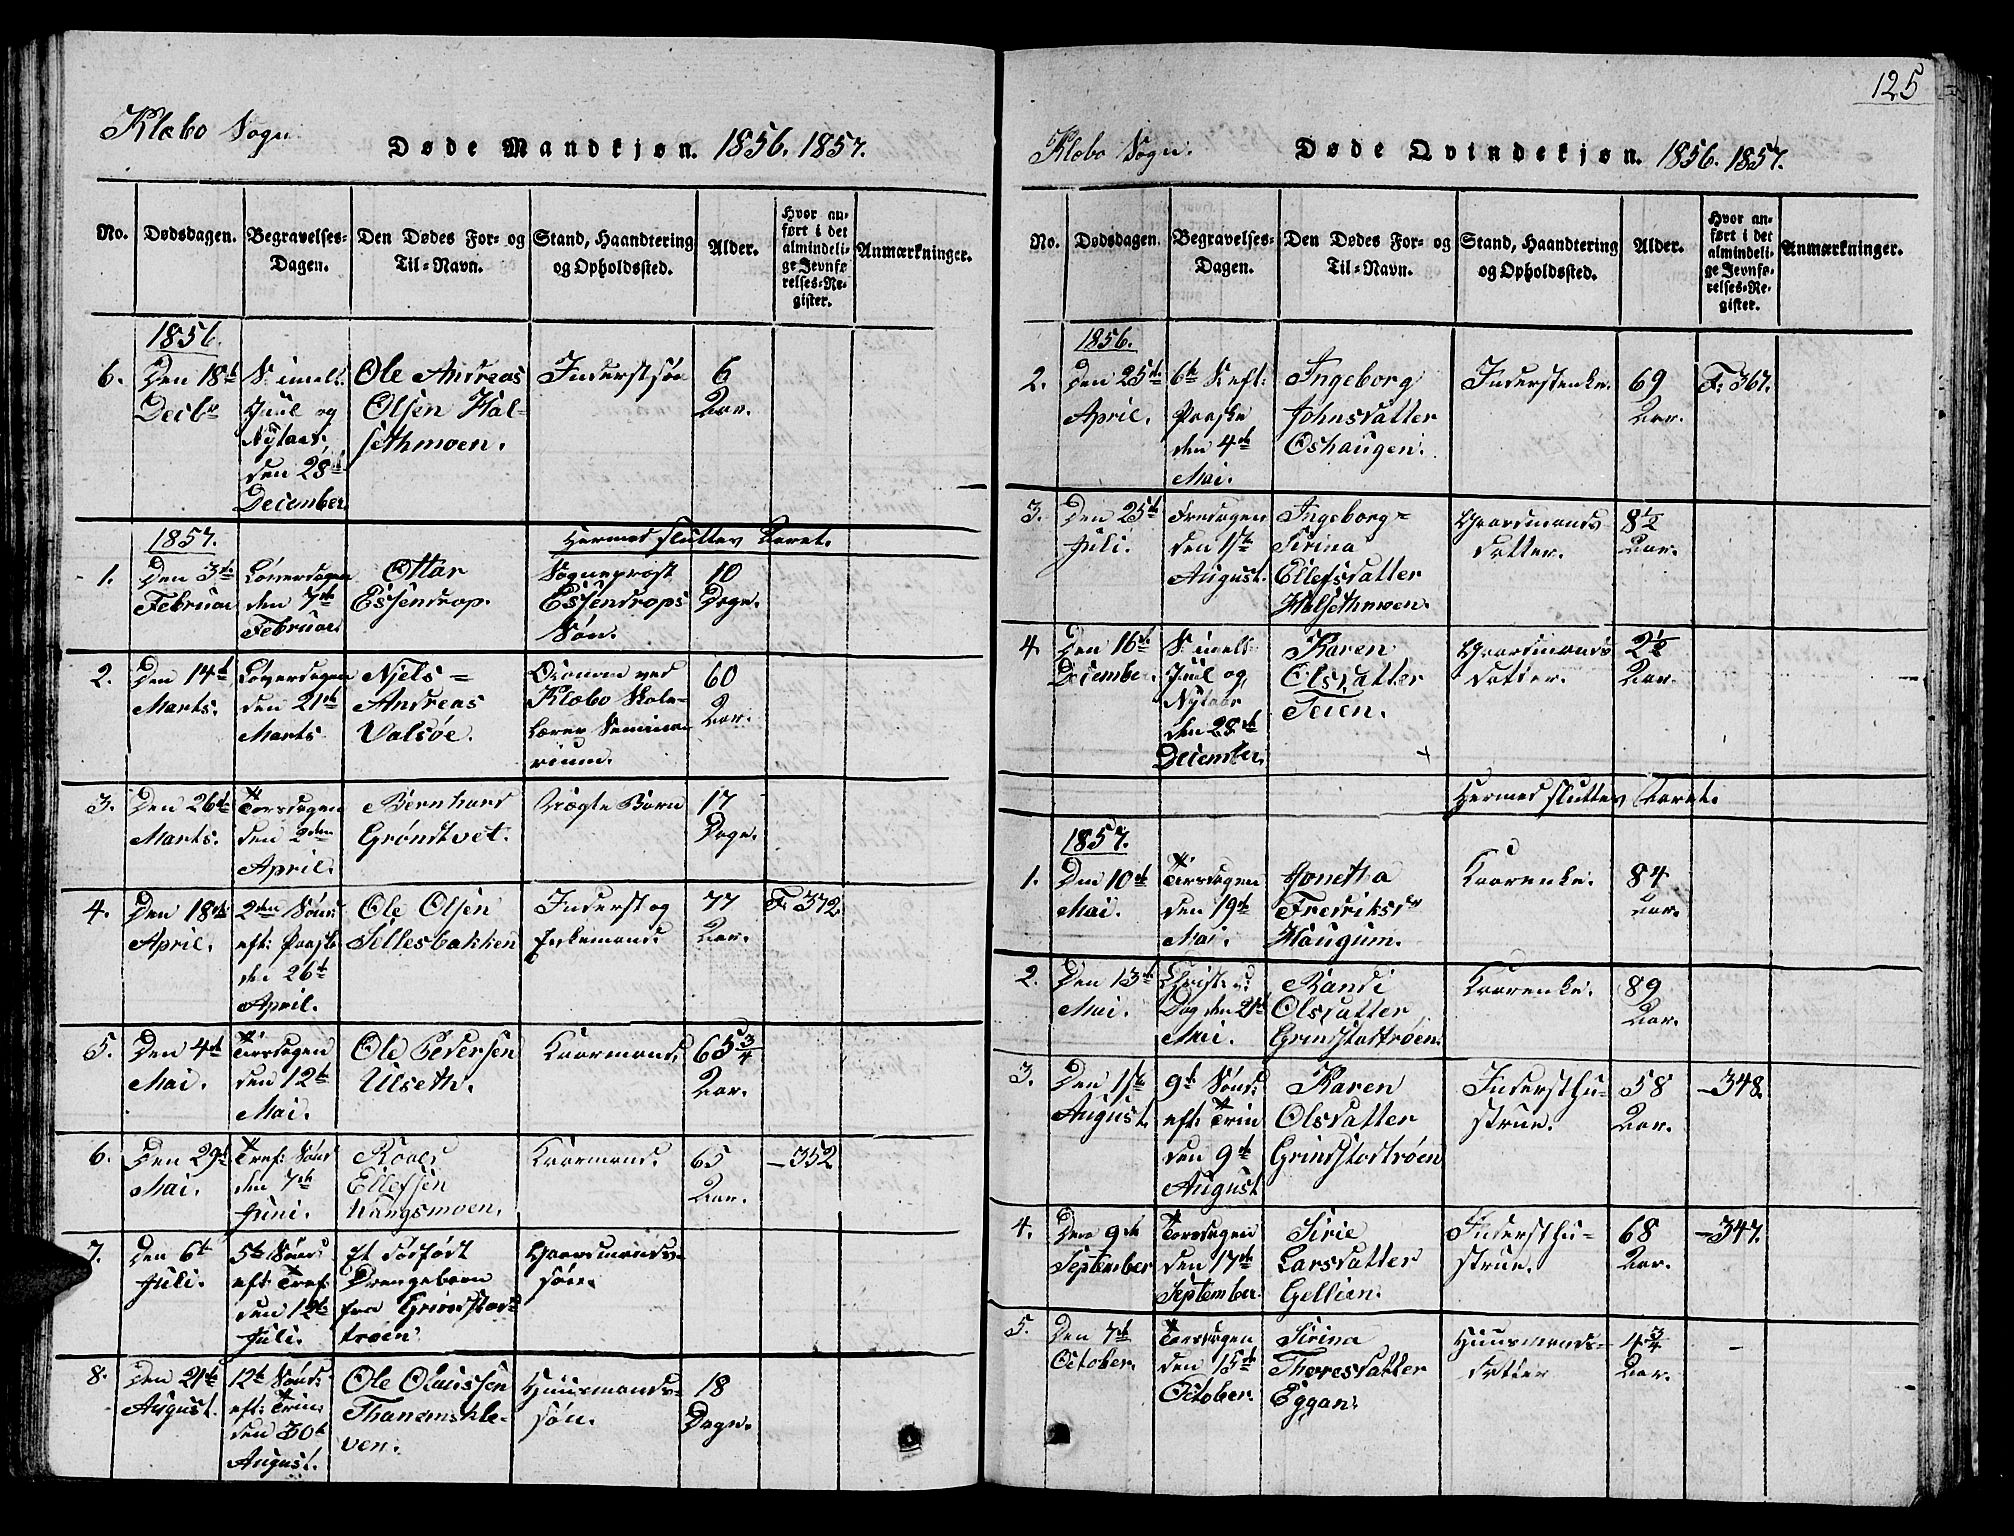 125
Klæbo Sogn.
Døde Mandkjøn. 1856. 1857.
No. Dødsdagen. Begravelses-Dagen. Den Dødes For- og Til-Navn. Stand, Haandtering og Opholdssted. Alder. Hvor anført i det almindelige Jevnførelses-Register. Anmærkninger.
1856.
6. Den 18de Decbr S. imel. Juul og Nytaar, den 28de December Ole Andreas Olsen Halsethmoen. Inderstsøn 6 Aar.
1857. Hermed sluttes Aaret.
1. Den 3de Februar Løverdagen den 7de Februar. Ottar Essendrop. Sogneprest Essendrops Søn. 10 Dage.
2. Den 14de Marts. Løverdagen den 21de Marts Niels=Andreas Valsøe. Oconom ved Klæbo Skolelærer Seminarium. 60 Aar.
3. Den 26de Marts. Torsdagen den 2den April Bernhard Grøndtvet. Uægte Barn 17 Dage.
4. Den 18de April. 2den Sønd: eft: Paaske den 26de April. Ole Olsen Sellesbakken Inderst og Enkemand. 77 Aar. F. 372.
5. Den 4de Mai. Tirsdagen den 12te Mai. Ole Pedersen Ulseth. Kaarmand. 65 3/4 Aar.
6. Den 29de Mai. Tref: Sønd den 7de Juni. Roald Ellefsen Vangsmoen. Kaarmand. 65 Aar. - 352
7. Den 6te Juli. 5te Sønd: eft: Tref: den 12te Juli. Et dødfødt Drengebarn fra Grindstadtrøen. Gaardmands-søn.
8. Den 21de August. 12te Sønd: eft: Trin: den 30te August. Ole Olaussen Thanemskleven. Huusmands-søn. 18 Dage.
Klæbo Sogn.
Døde Qvindekjøn. 1856. 1857.
No. Dødsdagen. Begravelses-Dagen. Den Dødes For- og Til-Navn. Stand, Haandtering og Opholdssted. Alder. Hvor anført i det almindelige Jevnførelses-Register. Anmærkninger.
1856.
2. Den 25de April. 6te S. eft: Paaske den 4de Mai. Ingeborg Johnsdatter Oshaugen. Inderstenke. 69 Aar. F. 367.
3. Den 25de Juli. Fredagen den 1ste August. Ingeborg=Sirina Ellefsdatter Halsethmoen. Gaardmands Datter. 8 1/2 Aar.
4. Den 16de December. S. imell: Juul og Nytaar den 28de December. Karen Olsdatter Teien. Gaardmands Datter. 2 1/2 Aar.
Hermed sluttes Aaret.
1857.
1. Den 10de Mai. Tirsdagen den 19de Mai. Jonetha Fredriksdr Haugum. Kaarenke. 84 Aar.
2. Den 13de Mai. Christ. Dag den 21de Mai. Randi Olsdatter Grindstadtrøen. Kaarenke. 89 Aar.
3. Den 1ste August. 9de Sønd: eft: Trin den 9de August Karen Olsdatter Grindstadtrøen Indersthustrue. 58 Aar. - 348.
4. Den 9de September Torsdagen den 17de September. Sirie Larsdatter Gellien. Indersthustrue. 68 Aar. - 347.
5. Den 7de October. Torsdagen den 15de October. Sirina Thoresdatter Eggan. Huusmands-datter 4 3/4 Aar. -